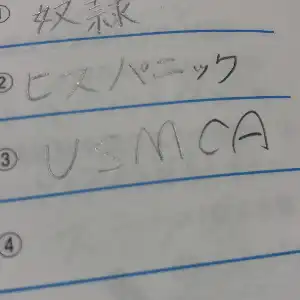 ① 奴隷
② ヒスパニック
③ USMCA
④